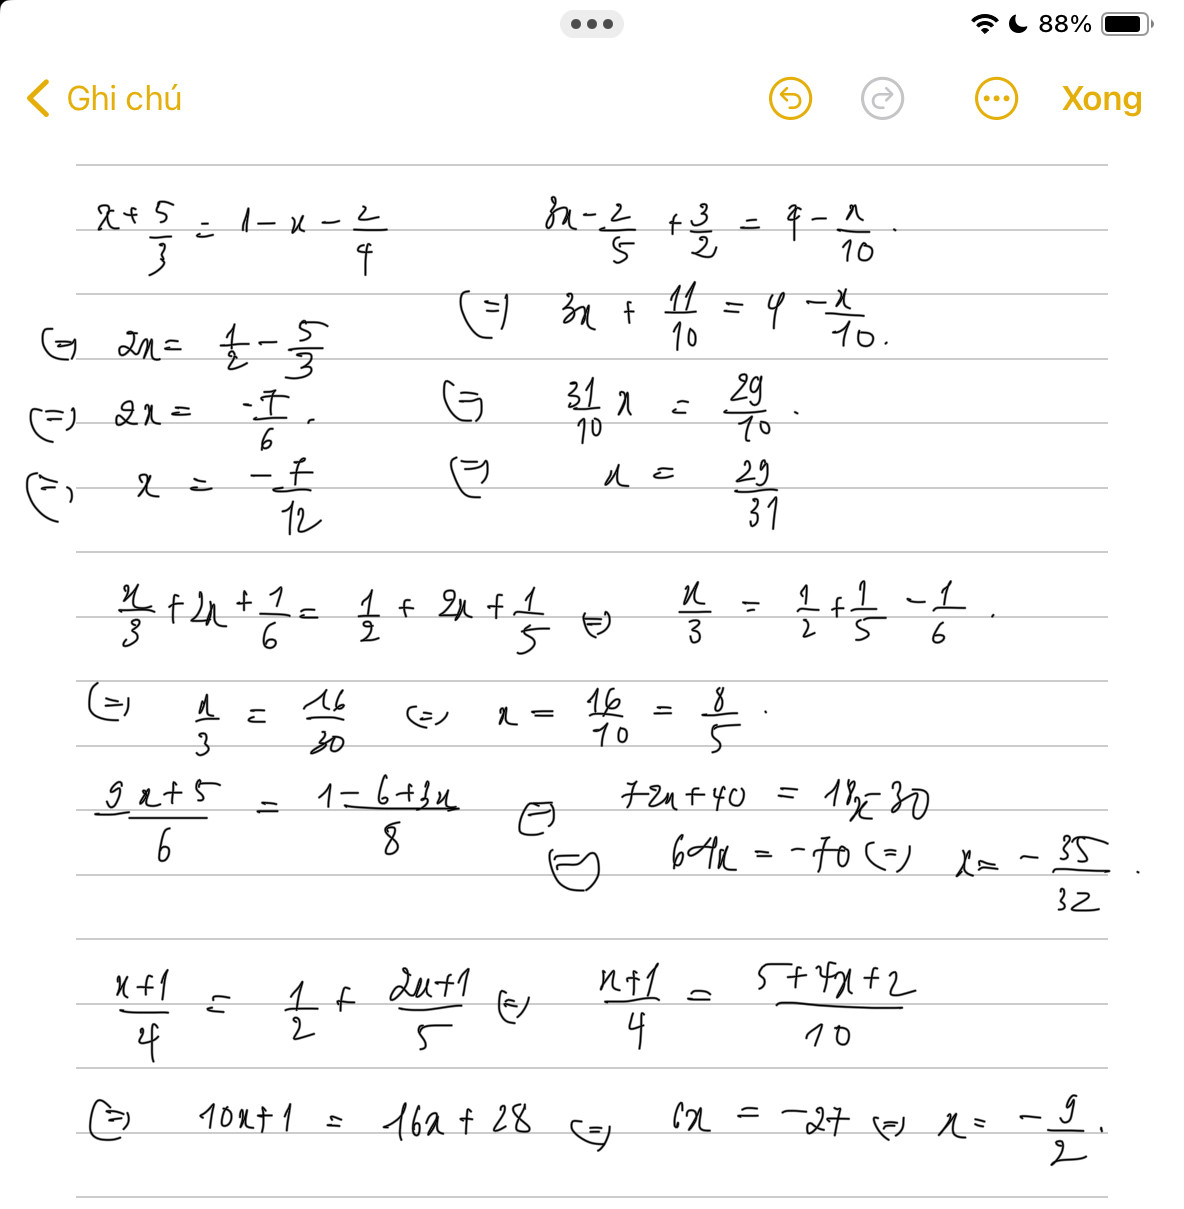 88%
Ghi chú Xong
x + 5/3 = 1 - x - 2/4
(=) 2x = 1/2 - 5/3
(=) 2x = -7/6.
(=) x = -7/12
3x - 2/5 + 3/2 = 4 - x/10.
(=) 3x + 11/10 = 4 - x/10.
(=) 31/10 x = 29/10.
(=) x = 29/31
x/3 + 2x + 1/6 = 1/2 + 2x + 1/5 (=) x/3 = 1/2 + 1/5 - 1/6.
(=) x/3 = 16/30 (=) x = 16/10 = 8/5.
(9x+5)/6 = (1-6+3x)/8 (=) 72x+40 = 18x-30
(=) 64x = -70 (=) x = -35/32.
(x+1)/4 = 1/2 + (2x+1)/5 (=) (x+1)/4 = (5+4x+2)/10
(=) 10x+1 = 16x+28 (=) 6x = -27 (=) x = -9/2.